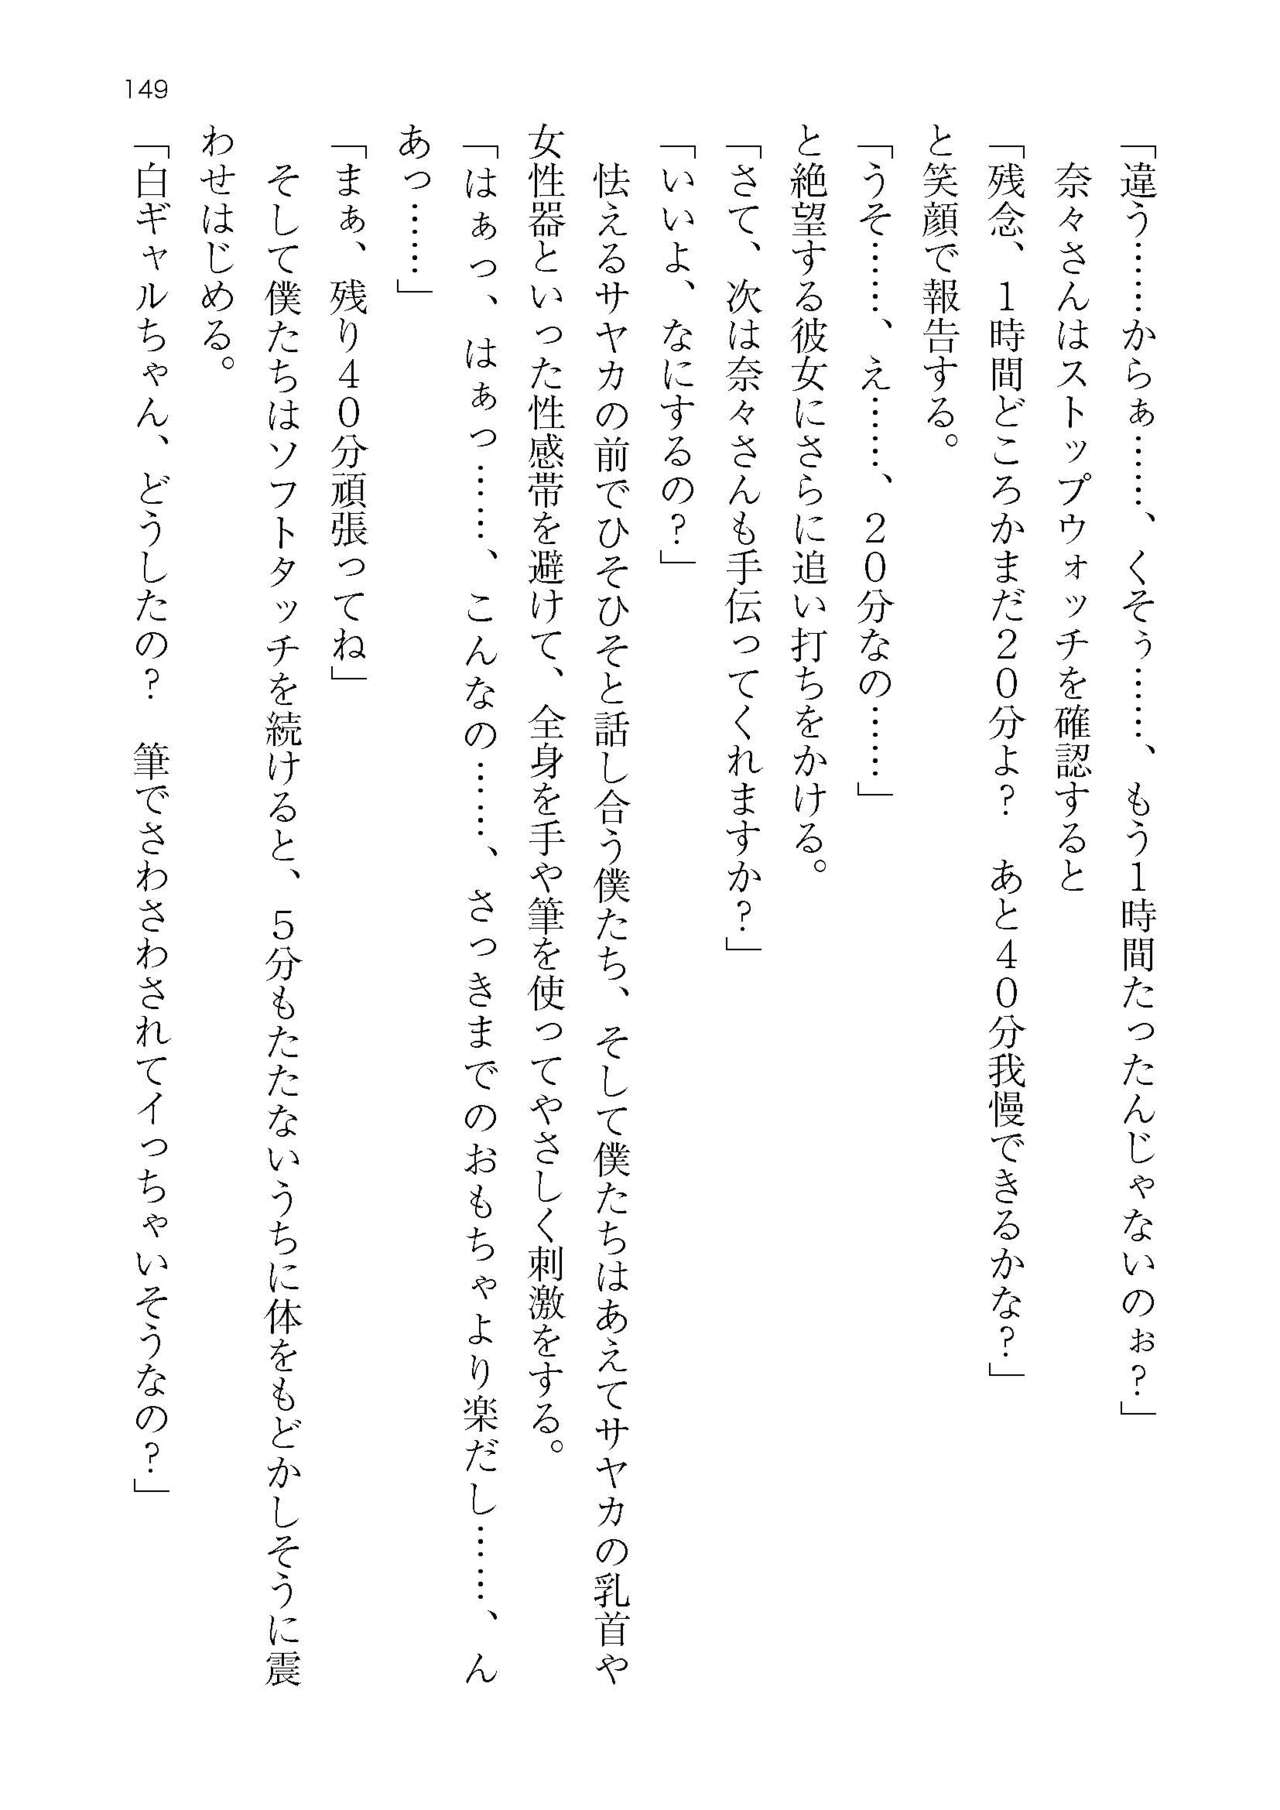 149
「違う……からぁ……、くそぅ……、もう1時間たったんじゃないのぉ?」
　奈々さんはストップウォッチを確認すると
「残念、1時間どころかまだ20分よ?　あと40分我慢できるかな?」
と笑顔で報告する。
「うそ……、え……、20分なの……」
と絶望する彼女にさらに追い打ちをかける。
「さて、次は奈々さんも手伝ってくれますか?」
「いいよ、なにするの?」
　怯えるサヤカの前でひそひそと話し合う僕たち、そして僕たちはあえてサヤカの乳首や
女性器といった性感帯を避けて、全身を手や筆を使ってやさしく刺激をする。
「はぁっ、はぁっ……、こんなの……、さっきまでのおもちゃより楽だし……、ん
あっ……」
「まぁ、残り40分頑張ってね」
　そして僕たちはソフトタッチを続けると、5分もたたないうちに体をもどかしそうに震
わせはじめる。
「白ギャルちゃん、どうしたの?　筆でさわさわされてイっちゃいそうなの?」